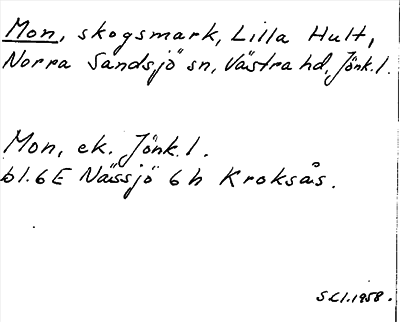 Mon, skogsmark, Lilla Hult,
Norra Sandsjö sn, Västra hd, Jönk.l.
Mon, ek. Jönk.l.
bl. 6E Nässjö 6h Kroksås.
1958.